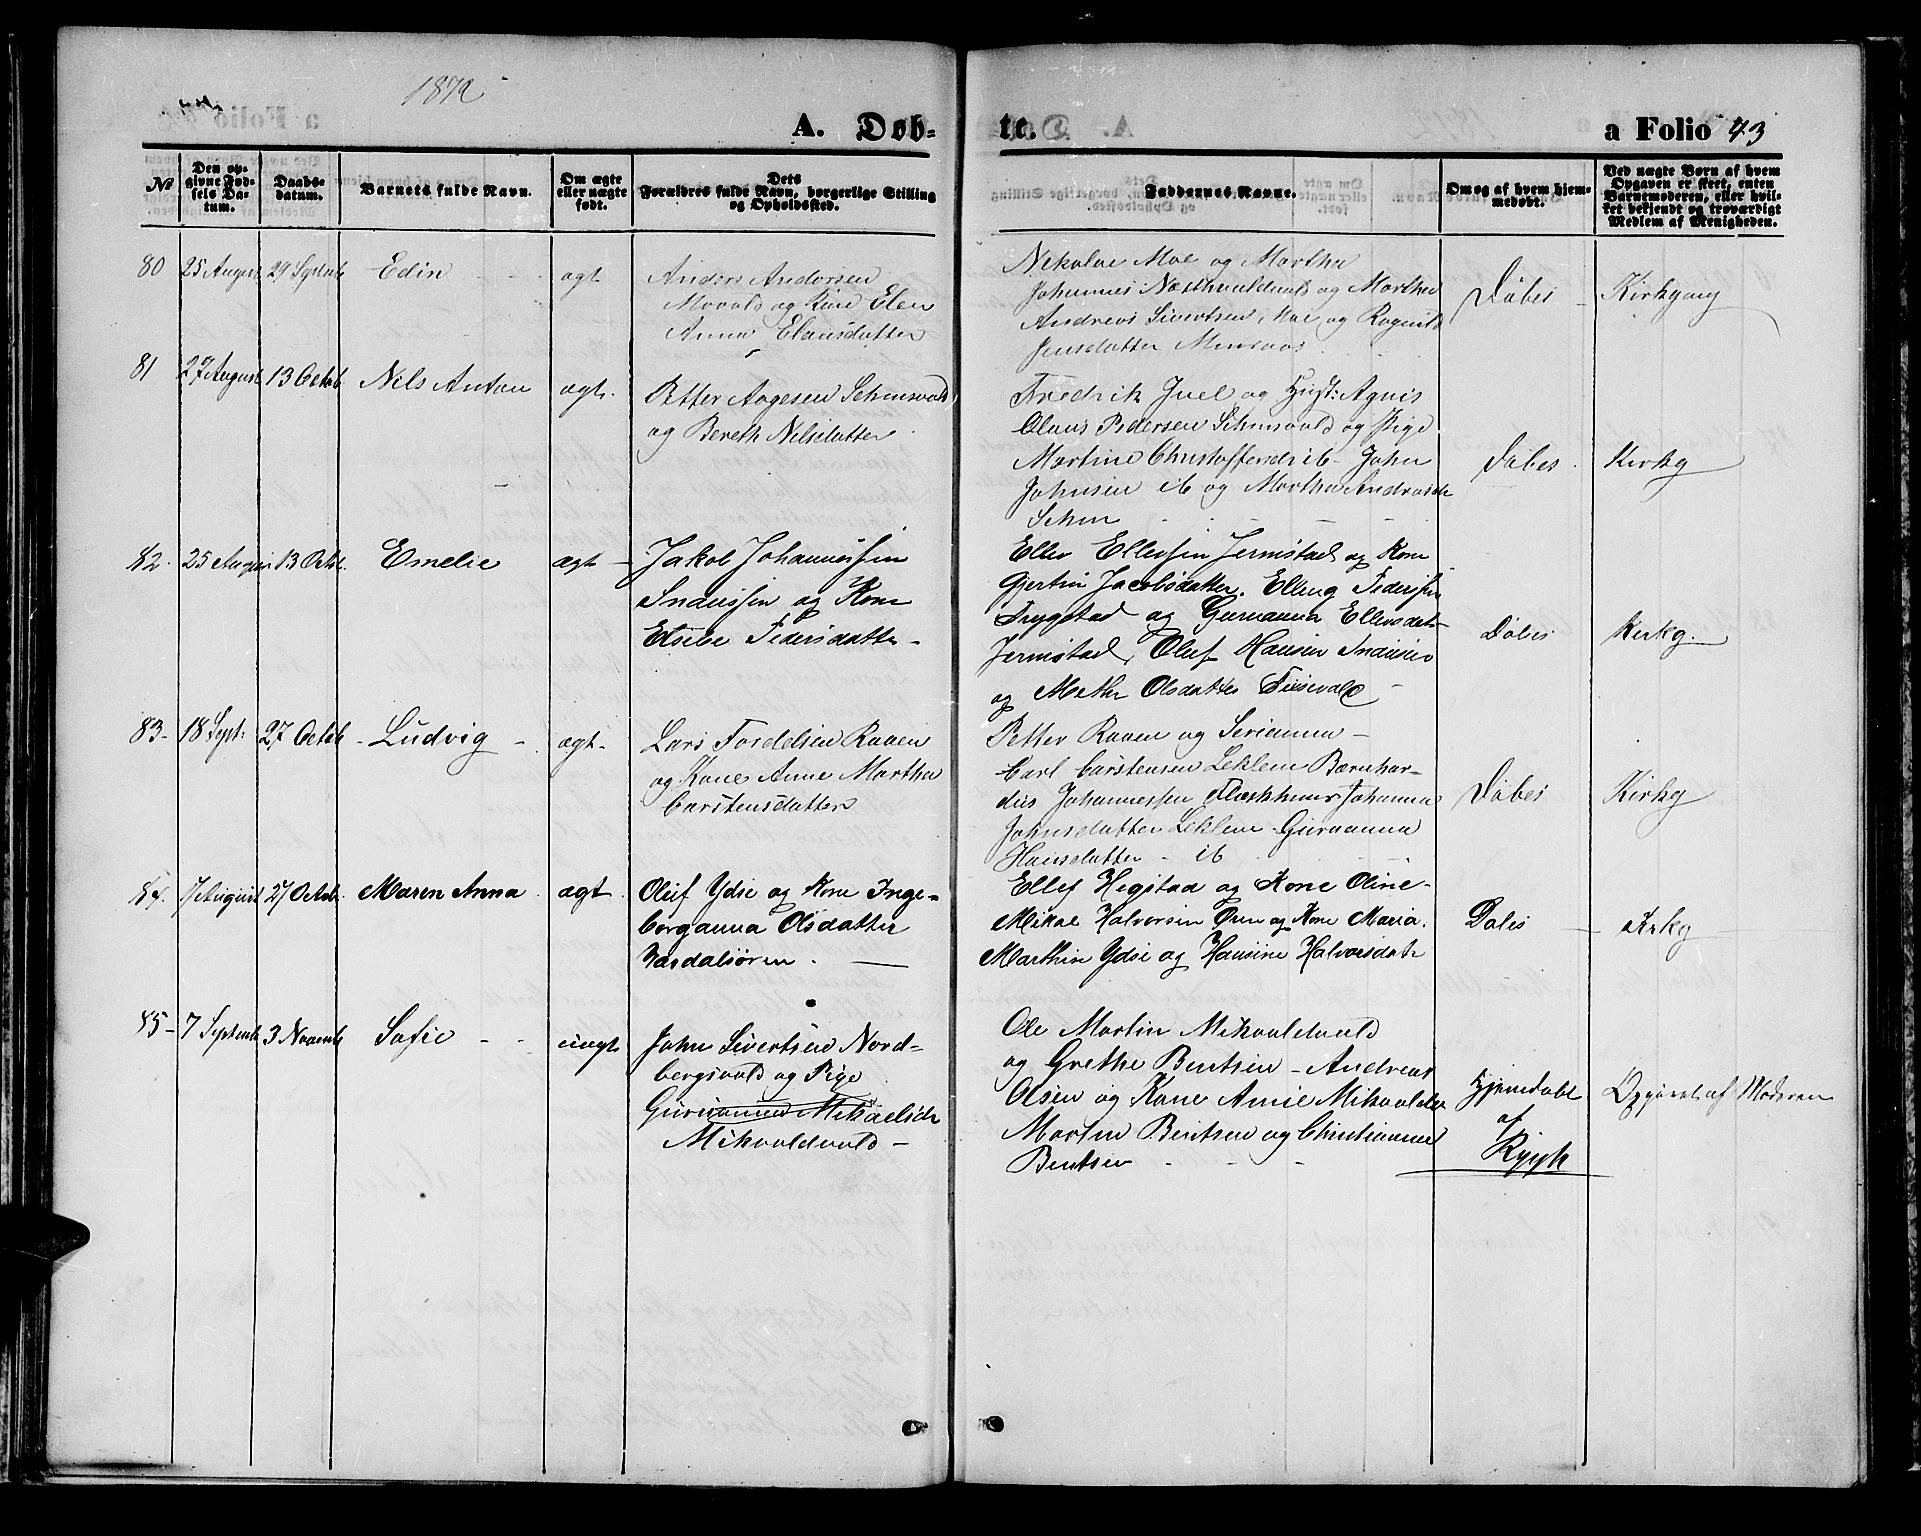 1872
A. Døb-
te.
a Folio 43
No
Den op-
givne Fød-
sels Da-
tum.
Daabs-
datum.
Barnets fulde Navn.
Om ægte
eller uægte
født.
Dets
Forældres fulde Navn, borgerlige Stilling
og Opholdssted.
Faddernes Navne.
Om og af hvem hjem-
medøbt.
Ved uægte Børn af hvem
Opgaven er skeet, enten
Barnemoderen, eller hvil-
ket bekjendt og troværdigt
Medlem af Menigheden.
80 25 August 29 Septemb Edin - - ægt
Anders Andersen
Movald og Kone Elen
Anna Elausdatter
Nikolae Moe og Martha
Johannes Næsthvaldvald og Martha
Andreas Sivertsen Moe og Ragnild
Jensdatter Minsaas
Døbes - Kirkgang
81 27 August 13 Octob Nils Anton ægt.
Petter Aagesen Schinsvald
og Bereth Nilsdatter
Fredrik Juel og Hust: Agnis
Olaus Pedersen Schinsvald og Pige
Martine Christoffersdr ib - John
Johnsen ib og Martha Andreasdr
Schin - - -
Døbes. Kirkg
82. 25 August 13 Octob. Emelie ægt -
Jakob Johannessen
Indussen og Kone
Elsebe Pedersdatter -
Ellev Ellevsen Jermstad og Kone
Gjertin Jacobsdatter. Elling Pedersen
Trygstad og Gurianna Ellevsdat-
Jermstad, Oluf Hansen Indusen
og Methe Olsdatter -
Døbes Kirkg.
83- 18 Sept. 27 Octob - Ludvig - ægt-
Lars Tordelsen Raaen
og Kone Anne Martha
Carstensdatter
Petter Raaen og Serianna -
Carl Carstensen Leklem Bærnhar-
dus Johannessen Johanna
Johnsdatter Leklem - Gurianna
Hansdatter - ib
Døbes Kirkg
84. 17 August 27 Octob. Maren Anna. ægt.
Oluf Ydse og Kone Inge-
borganna Olsdatter
Værdalsøren. -
Ellef Hegstad og Kone Oline -
Mikal Halvorsen Øren og Kone Maria.
Marthin Ydse og Hansine Halvorsdatr
Døbes - Kirkg
85- 7 Septemb 3 Novemb Sofie - - uægt
John Sivertsen Nord-
bergsvald og Pige
Gurianna Mikaelsdr
Mikvoldvald -
Ole Martin Mikvoldvald
og Grethe Bentsen - Andreas
Olsen og Kone Anne Mikvoldvald
Martin Bentsen og Christianna
Bentsen - - -
Hjemdøbt
af
Rygh
Opgivet af Moderen